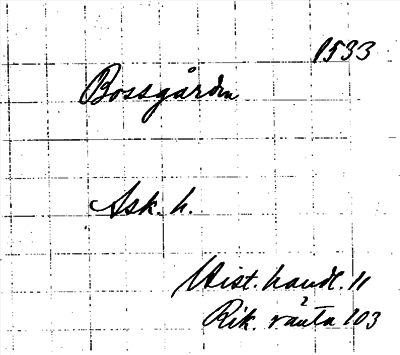 1533
Bossgården
Ask. h.
Hist. handl. 11
2
Rik. ränta 103